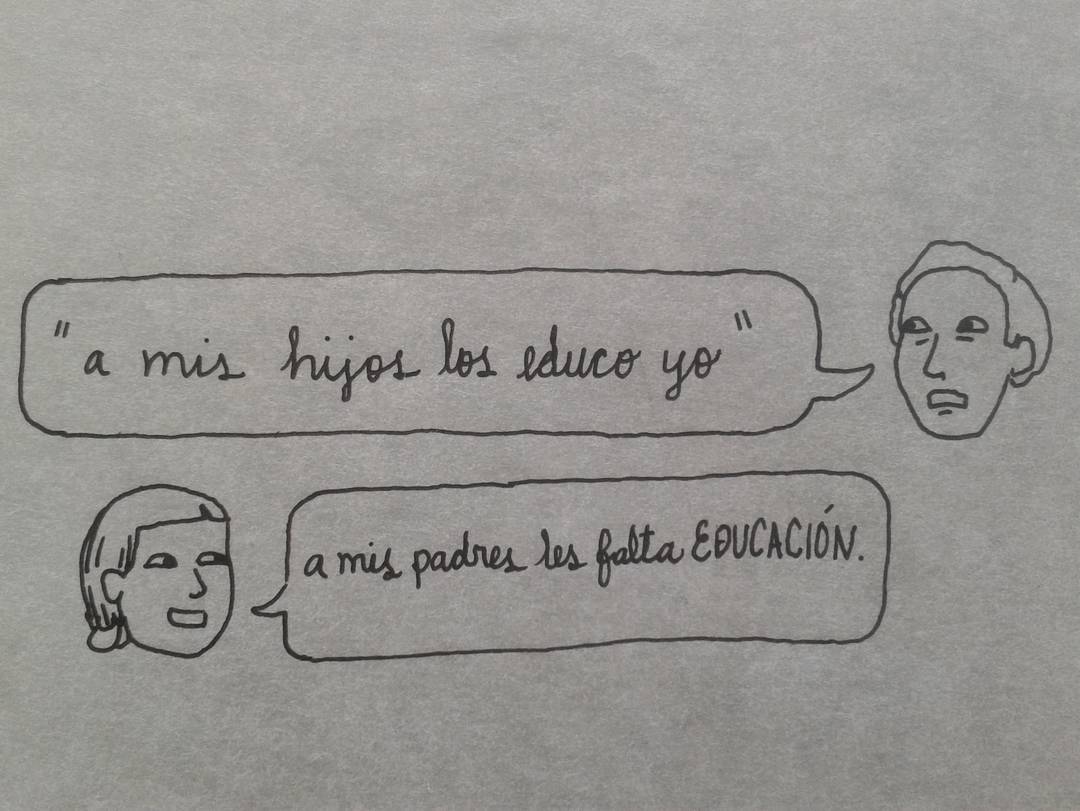 "a mis hijos los educo yo"
a mis padres les falta EDUCACIÓN.